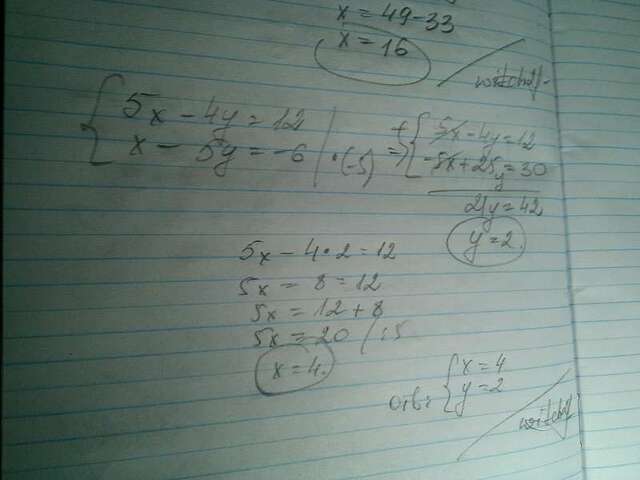 x = 49-33
x = 16
{ 5x - 4y = 12
x - 5y = -6 | •(-5) =>
+ { 5x - 4y = 12
-5x + 25y = 30
21y = 42
y = 2.
5x - 4•2 = 12
5x - 8 = 12
5x = 12 + 8
5x = 20 /:5
x = 4.
отв: { x = 4
y = 2